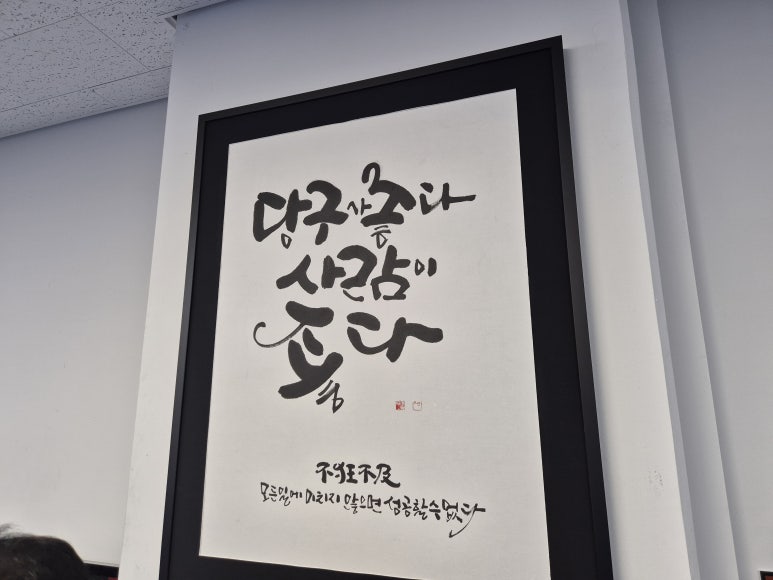 당구가 좋다
사람이
좋다
不狂不及
모든일에 미치지 않으면 성공할수 없다